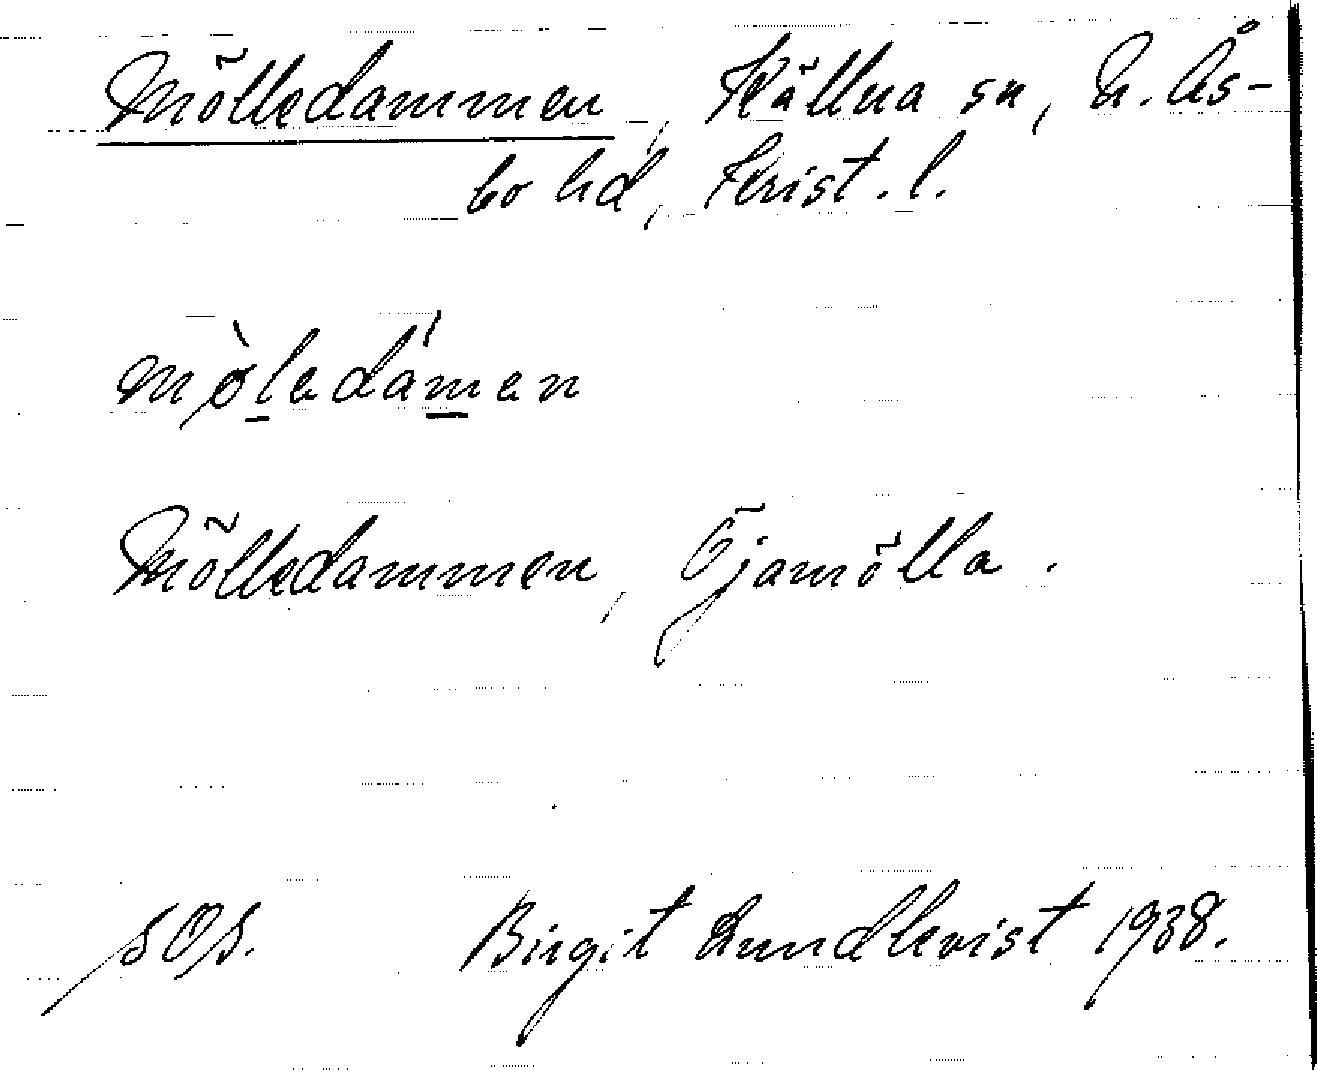 Mölledammen, Källna sn, N. Ås-
bo hd, Krist. l.
mø̀ledámen
Mölledammen, Öjamölla.
sos. Birgit Lundkvist 1938.